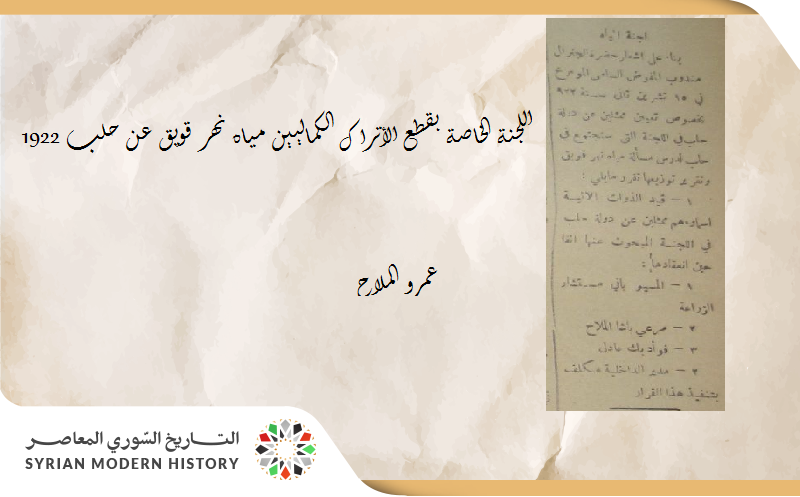 اللجنة الخاصة بقطع الأتراك الكماليين مياه نهر قويق عن حلب 1922
عمرو الملاح
لجنة المياه
بناء على اشعار حضرة الجنرال
مندوب المفوض السامي الموءرخ
في ١٥ تشرين ثاني سنة ٩٢٢
بخصوص تعيين ممثلين عن دولة
حلب في اللجنة التي ستجتمع في
حلب لدرس مسألة مياه نهر قويق
وتقرير توزيعها تقرر مايلي :
١ — قيد الذوات الاتية
اسماوءهم ممثلين عن دولة حلب
في اللجنة المبحوث عنها انفا
حين انعقادها :
١ — المسيو باني مستشار
الزراعة
٢ — مرعي باشا الملاح
٣ — فوأد بك عادل
٢ — مدير الداخلية مكلف
بتنفيذ هذا القرار
التاريخ السّوري المعاصر
SYRIAN MODERN HISTORY